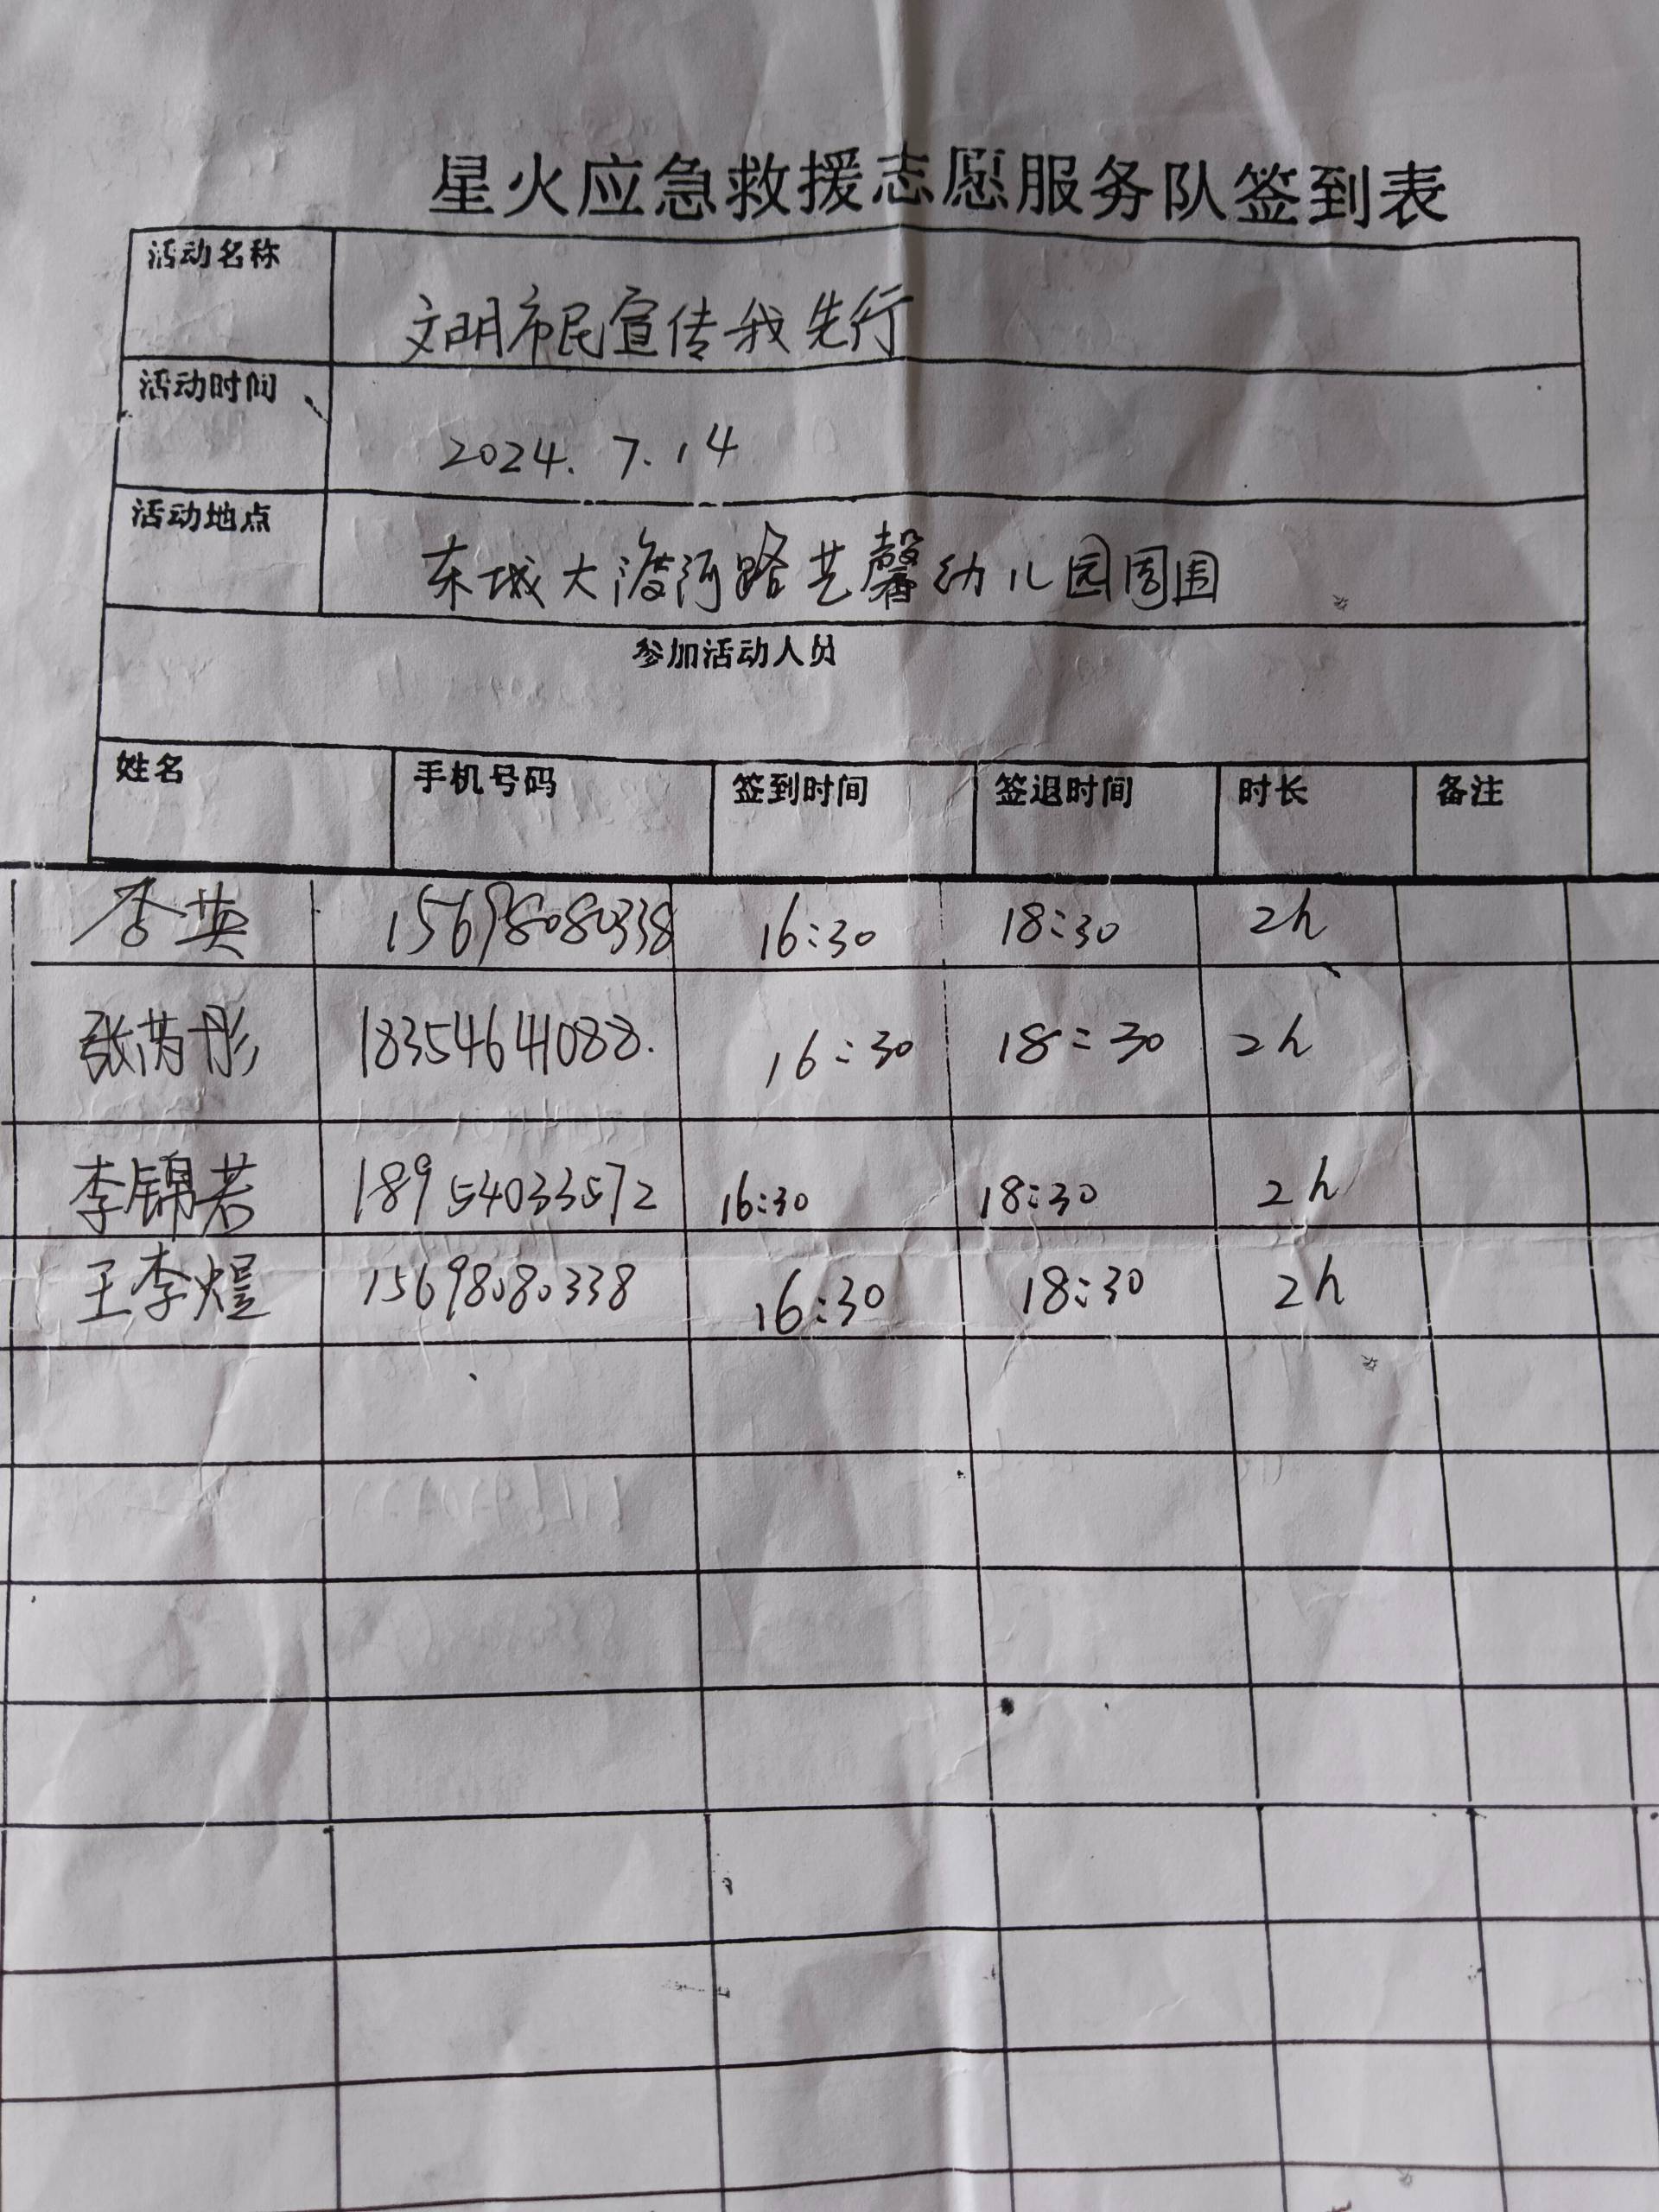 星火应急救援志愿服务队签到表
活动名称 文明市民宣传我先行
活动时间 2024.7.14
活动地点 东城大渡河路艺馨幼儿园周围
参加活动人员
姓名 手机号码 签到时间 签退时间 时长 备注
李英 15698080338 16:30 18:30 2h
张芮彤 18354641088. 16:30 18:30 2h
李锦若 18954033572 16:30 18:30 2h
王李煜 15698080338 16:30 18:30 2h